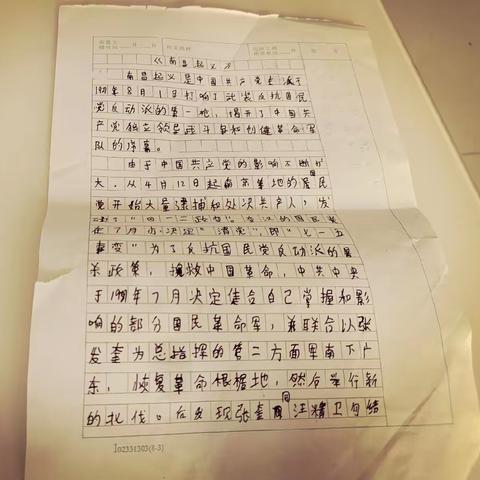 《南昌起义》
南昌起义是中国共产党
年8月1日打响了武装反抗国民
党反动派的第一枪,揭开了中国共
产党独立领导战斗争和创建革命军
队的序幕。
由于中国共产党的影响不断扩
大,从4月12日起南京等地的国民
党开始大量逮捕和处决共产人,发
动了"四一二政变"。武汉的国民党
在7月 决定"清党",即"七一五
事变"为了反抗国民党反动派的屠
杀政策,挽救中国革命,中共中央
于 年7月决定集合自己掌握和影
响的部分国民革命军,并联合以张
发奎为总指挥的第二方面军南下广
东,恢复革命根据地,然后举行新
的北伐。后发现张奎同汪精卫勾结
I02331303(8-3)